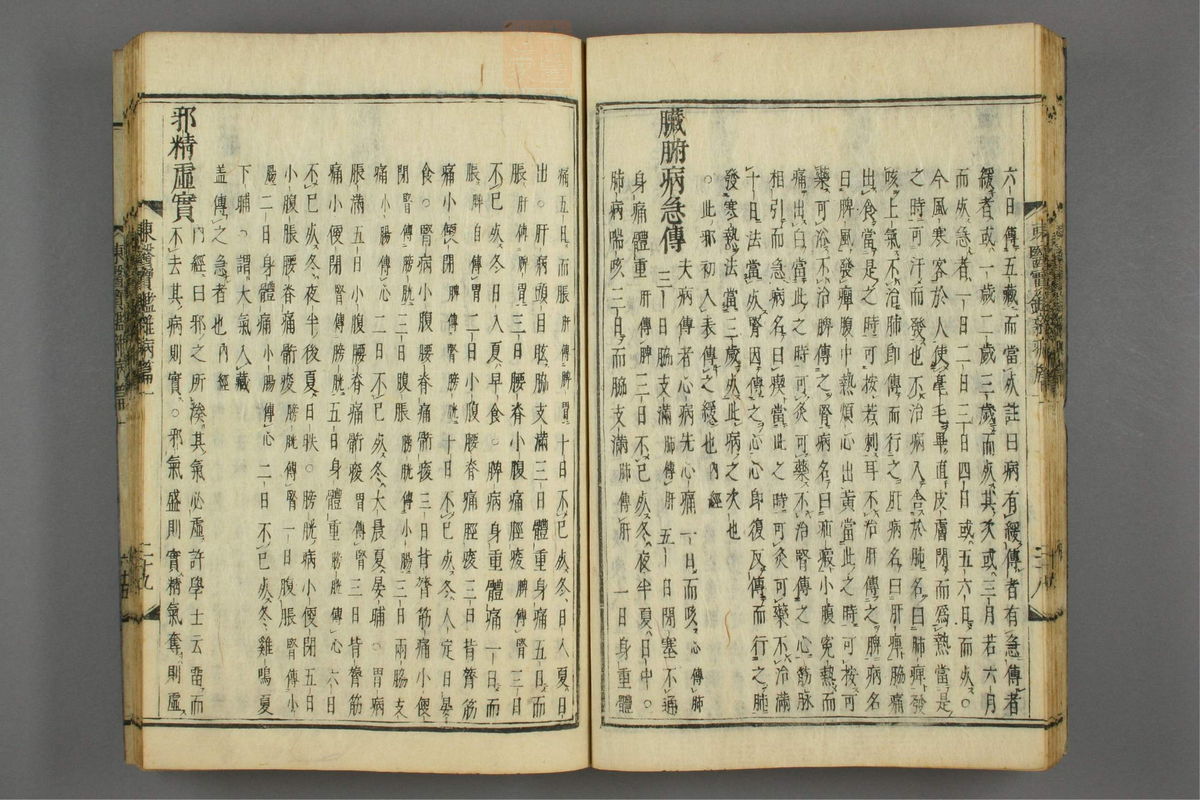 六日傳五藏而當死註曰病有緩傳者有急傳者
緩者或一歲二歲三歲而死其次或三月若六月
而死急者一日二日三日四日或五六日而死。
今風寒客於人使毫毛畢直皮膚閉而爲熱當是
之時可汗而發也不治病入舍於肺名曰肺痺發
咳上氣不治肺即傳而行之肝病名曰肝痺脇痛
出食當是之時可按若刺耳不治肝傳之脾病名
曰脾風發癉腹中熱煩心出黃當此之時可按可
藥可浴不治脾傳之腎病名曰疝瘕小腹寃熱而
痛出白當此之時可灸可藥不治腎傳之心筋脉
相引而急病名曰瘈當此之時可灸可藥不治滿
十日法當死腎因傳之心心即復反傳而行之肺
發寒熱法當三歲死此病之次也
。此邪初入表傳之緩也內經
臟腑病急傳 夫病傳者心病先心痛一日而咳心傳肺
三日脇支滿肺傳肝五日閉塞不通
身痛體重肝傳脾三日不已死冬夜半夏日中。
肺病喘咳三日而脇支滿肺傳肝一日身重體
痛五日而脹肝傳脾胃十日不已死冬日入夏日
出。肝病頭目眩脇支滿三日體重身痛五日而
脹肝傳脾胃三日腰脊小腹痛脛痠胃傳腎三日
不已死冬日入夏早食。脾病身重體痛一日而
脹脾自傳胃二日小腹腰脊痛脛痠三日背膂筋
痛小便閉脾傳腎膀十日不已死冬人定日晏
食。腎病小腹腰脊痛胻痠三日背膂筋痛小便
閉腎傳膀胱三日腹脹膀胱傳小腸三日兩脇支
痛小腸傳心二日不已死冬大晨夏晏晡。胃病
脹滿五日小腹腰脊痛胻痠胃傳腎三日背膂筋
痛小便閉腎傳膀胱五日身體重膀胱傳心六日
不已死冬夜半後夏日昳。膀胱病小便閉五日
小腹脹腰脊痛胻痠膀胱傳腎一日腹脹腎傳小
腸二日身體痛小腸傳心二日不已死冬雞鳴夏
下晡。謂大氣入藏
盖傳之急者也內經
邪精虛實 內經曰邪之所湊其氣必虛許學士云畱而
不去其病則實。邪氣盛則實精氣奪則虛
東醫寶鑑雜病篇一
二十九